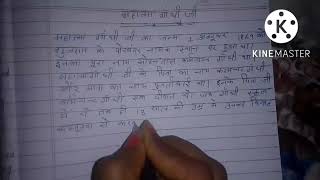 महात्मा गाँधी जी
महात्मा गाँधी जी का जन्म 2 अक्टूबर 1869 को
के पोरबन्दर नामक स्थान पर हुआ था।
इनका पूरा नाम मोहनदास करमचन्द गाँधी था।
महात्मा गाँधी जी के पिता का नाम करमचन्द गाँधी
और माता का नाम पुतलीबाई था। इनके पिता जी
गाँधी जी स्कूल
में थे तब ही 13 साल की उम्र में उनका विवाह
कस्तूरबा से
KINEMASTER